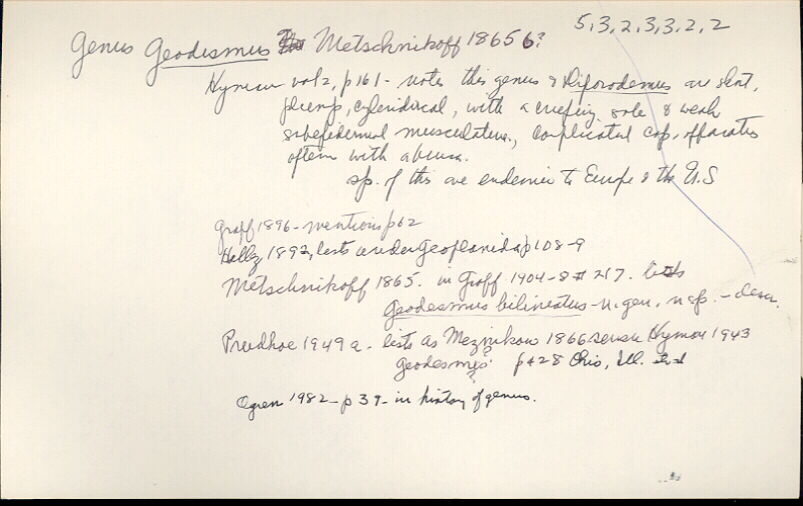 5, 3, 2, 3, 3, 2, 2
Genus Geodesmus Metschnikoff 1865 6?
Hyman vol 2, p 161 - notes this genus & Diporodemus are short,
plump, cylindrical, with a creeping sole & weak
subepidermal musculature, complicated cop. apparatus
often with a bursa.
sp. of this are endemic to Europe & the U.S
Graff 1896 - mentions p 62
Hallez 1892, lists under Geoplanida p 108-9
Metschnikoff 1865. in Graff 1904-8 # 217. lists
Geodesmus bilineatus - n. gen. n sp. - descr.
Prudhoe 1949a - lists as Meznikow 1866 sensu Hyman 1943
Geodesmus? p 428 Ohio, Ill.
?
Ogren 1982 - p 39 - in history of genus.